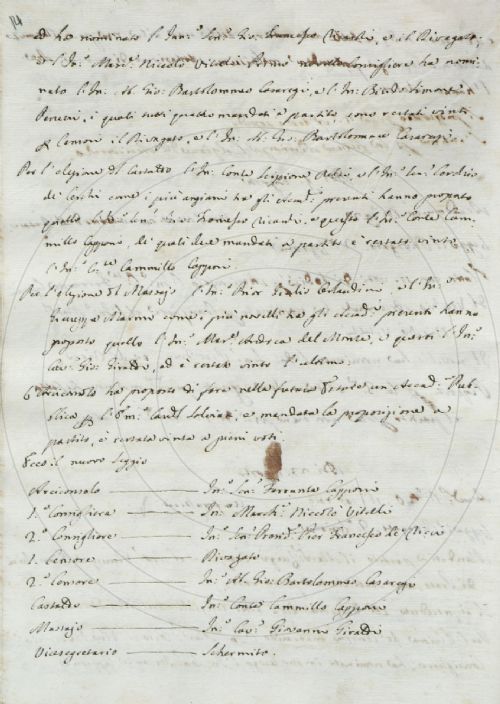 ed ha nominato l'Ill.mo Sen.e Gio: Francesco Ricasoli, e il Rivagato:
e l'Ill.mo March.e Niccolò Vitelli Primo novello Consigliere ha nomi-
nato l'Ill. Ab. Gio: Bartolommeo Casaregi, e l'Ill. Bindo Simone
Peruzzi, i quali tutti quattro mandati a partito sono restati vinti
per Censori il Rivagato, e l'Ill. Ab. Gio: Bartolommeo Casaregi.
Per l'elezione del Castaldo l'Ill. Conte Scipione e l'Ill. Sen.
de' Cerchi come i più anziani tra gli Accad.i presenti hanno proposto
quello Gio: Francesco Ricasoli, e questo l'Ill. Conte Cam-
millo Capponi, de' quali due mandati a partito è restato vinto
l'Ill. Co.te Cammillo Capponi.
Per l'elezione del Massajo l'Ill. Prior Giulio Orlandini, e l'Ill.
Giuseppe come i più novelli tra gli Accad.i presenti hanno
proposto quello l'Ill. Mar.e Andrea del Monte, e questi l'Ill.
Cav. Gio: Giraldi, ed è restato vinto l'ultimo.
L'Arciconsolo ha proposto di fare nella futura Estate un Accad.a Pub-
blica per l'Em.o Card. e mandata la proposizione a
partito, è restata vinta a pieni voti.
Ecco il nuovo Seggio
Arciconsolo — Ill. Sen. Ferrante Capponi
1.o Consigliere — Ill. March. Niccolò Vitelli
2.o Consigliere — Ill. Pier Francesco de' Ricci
1. Censore — Rivagato
2.o Censore — Ill. Ab. Gio: Bartolommeo Casaregi
Castaldo — Ill. Conte Cammillo Capponi
Massajo — Ill. Cav. Giovanni Giraldi
Vicesegretario — Schermito.